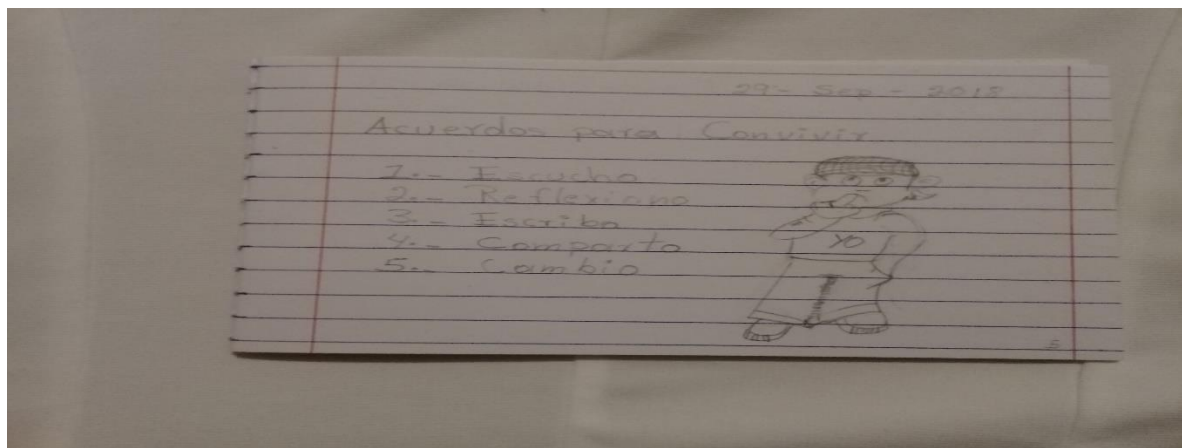 29 - Sep - 2018
Acuerdos para Convivir
1.- Escucho
2.- Reflexiono
3.- Escribo
4.- Comparto
5.- Cambio
YO
5